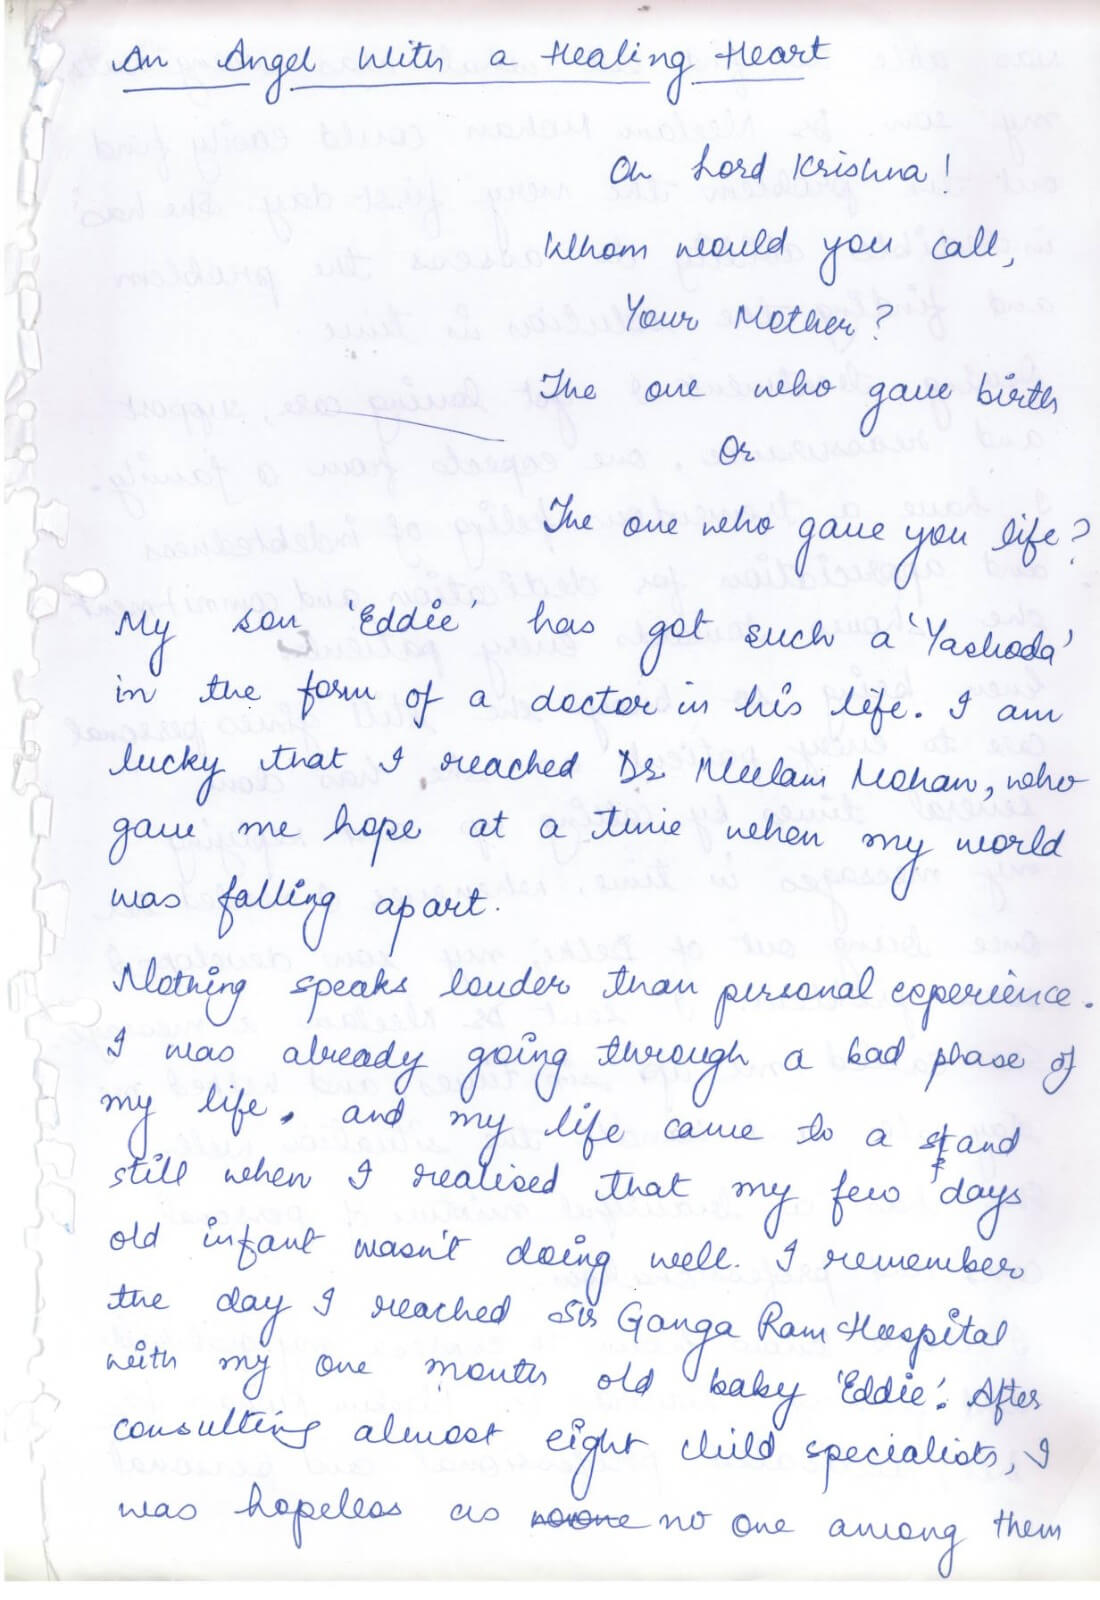 An Angel With a Healing Heart
Oh Lord Krishna!
Whom would you call,
Your Mother?
The one who gave birth
Or
The one who gave you life?
My son 'Eddie' has got such a 'Yashoda'
in the form of a doctor in his life. I am
lucky that I reached Dr Neelam Mohan, who
gave me hope at a time when my world
was falling apart.
Nothing speaks louder than personal experience.
I was already going through a bad phase of
my life, and my life came to a stand
still when I realised that my few days
old infant wasn't doing well. I remember
the day I reached Sir Ganga Ram Hospital
with my one month old baby 'Eddie'. After
consulting almost eight child specialists, I
was hopeless as no one among them